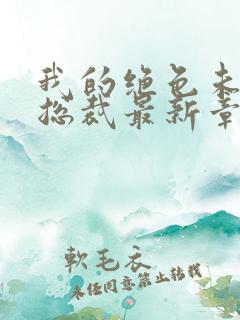 我的绝色未
总裁最新章
軟毛衣
未经同意禁止转载